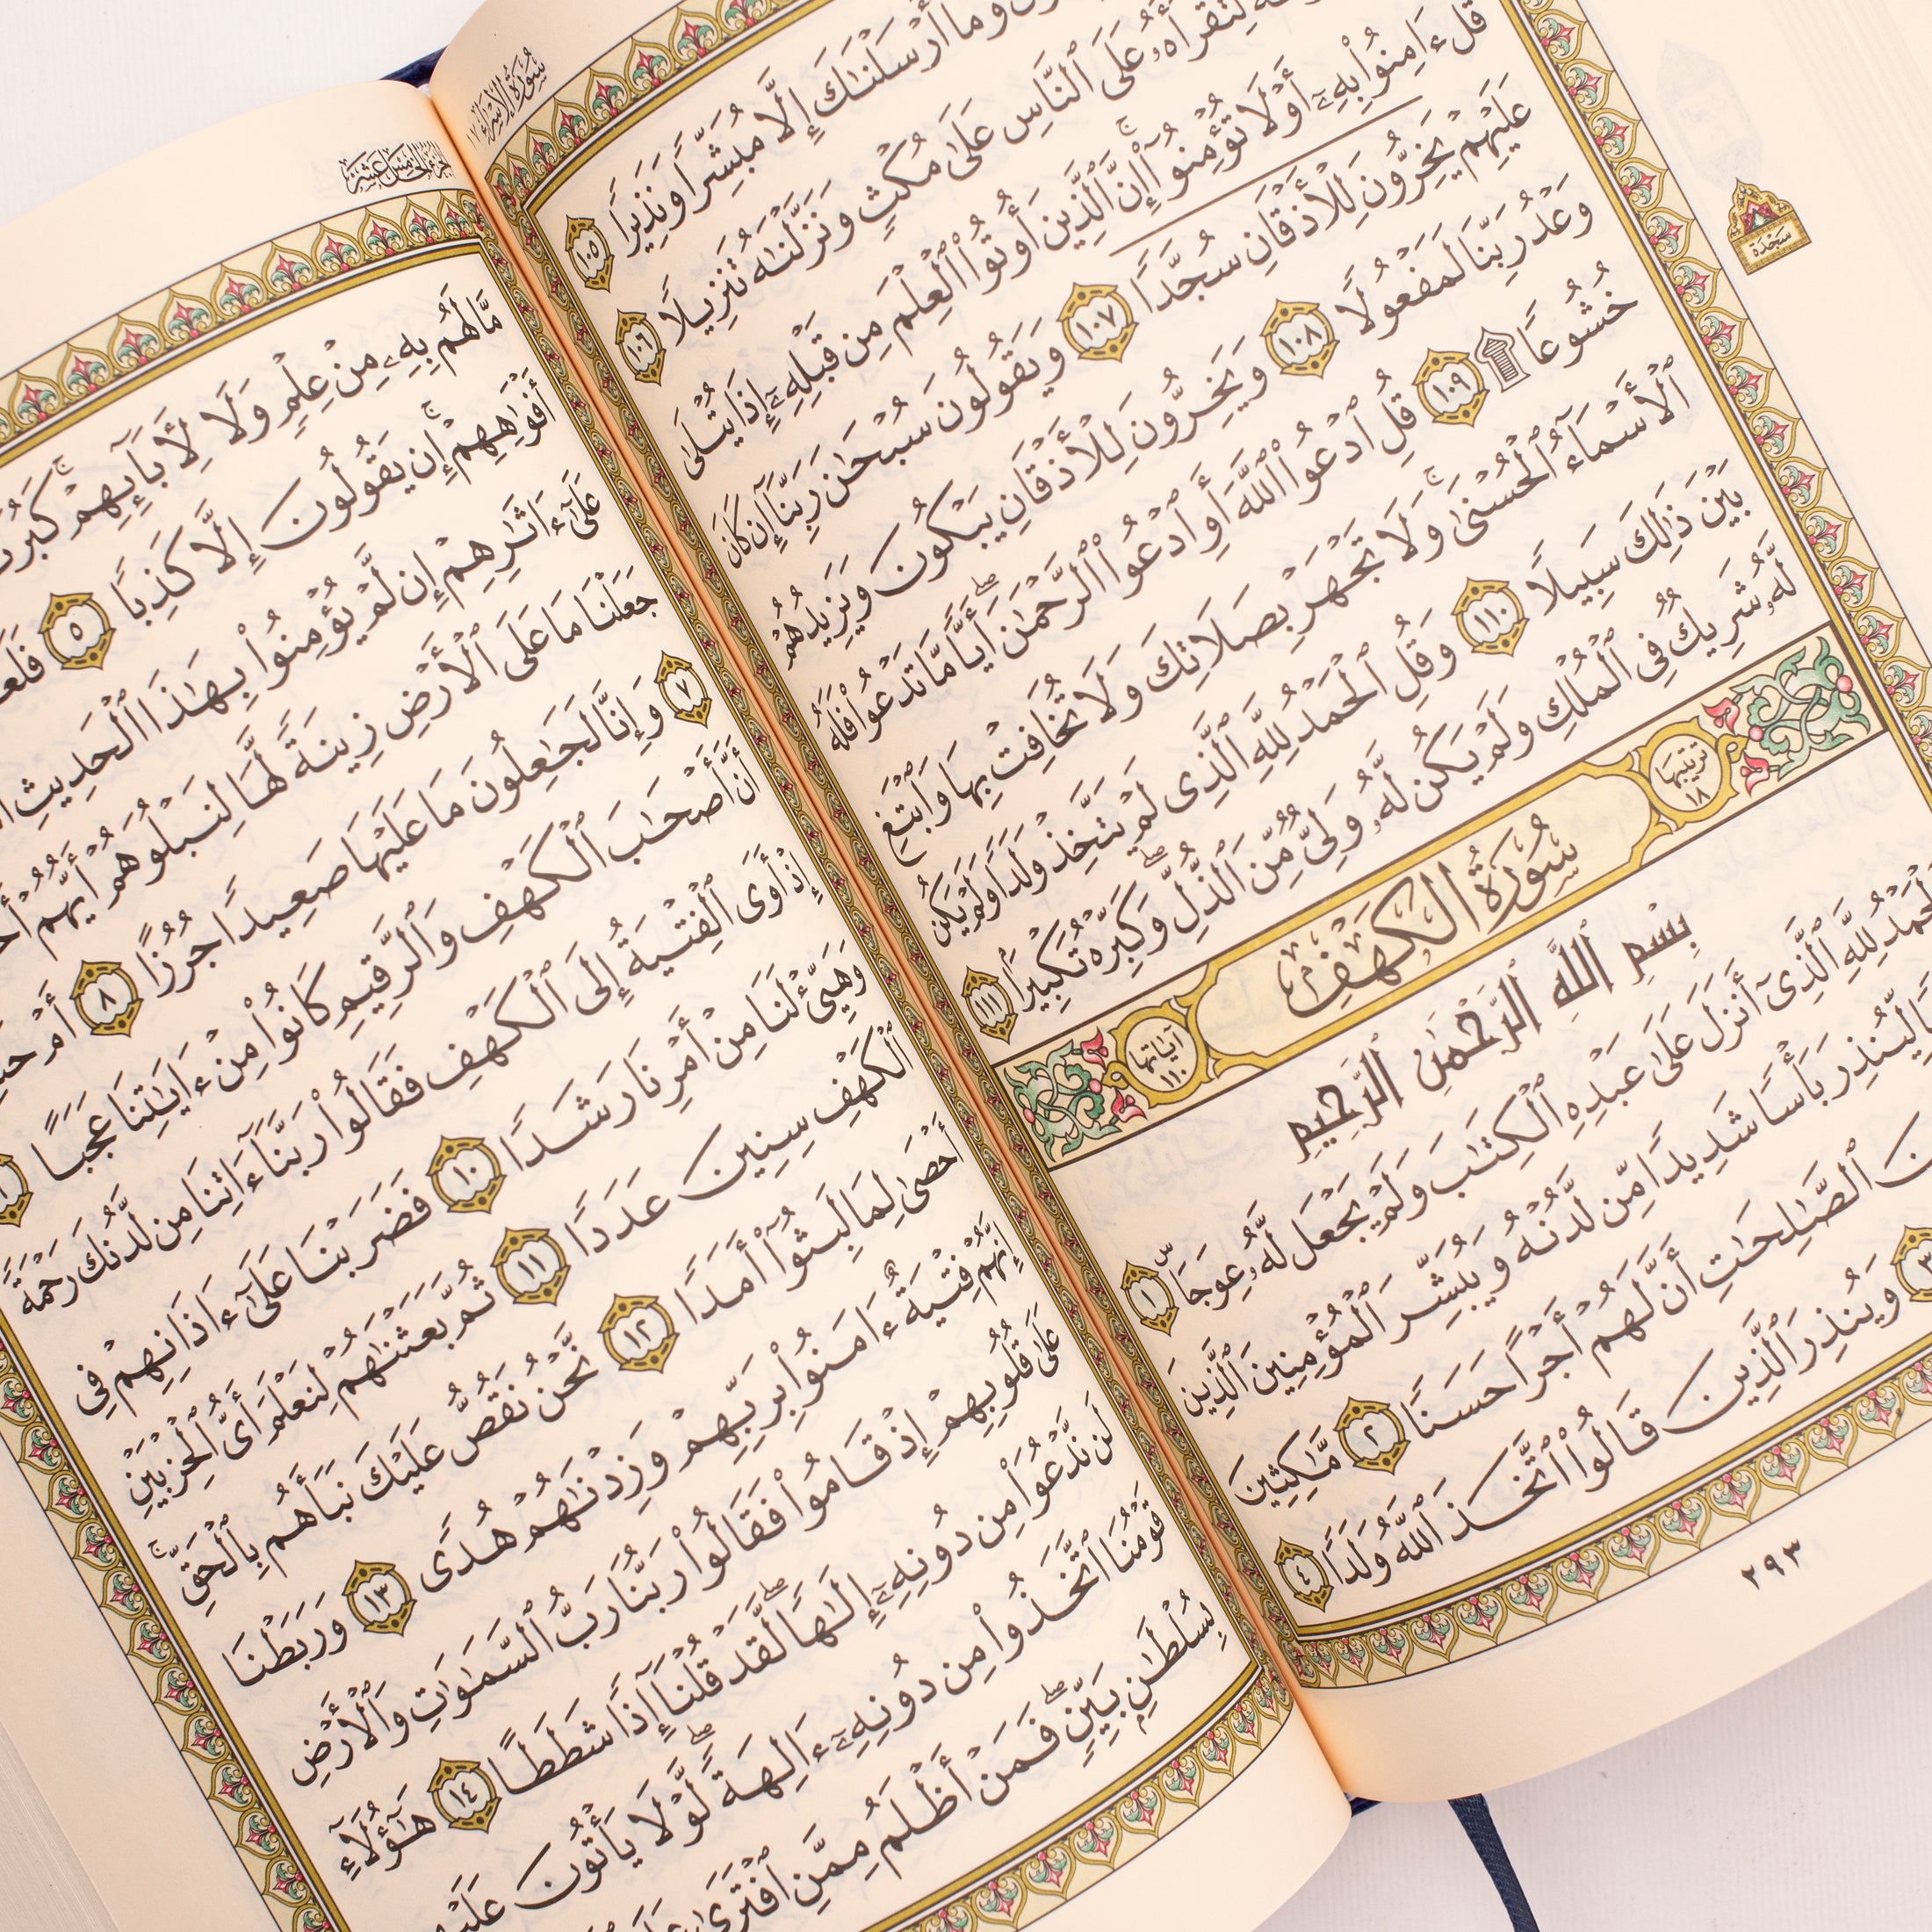 سُورَةُ الإِسْرَاءِ ١٧
وَمَآ أَرْسَلْنَٰكَ إِلَّا مُبَشِّرًا وَنَذِيرًا ١٠٥
لِتَقْرَأَهُۥ عَلَى ٱلنَّاسِ عَلَىٰ مُكْثٍ وَنَزَّلْنَٰهُ تَنزِيلًا ١٠٦
قُلْ ءَامِنُوا۟ بِهِۦٓ أَوْ لَا تُؤْمِنُوٓا۟ ۚ إِنَّ ٱلَّذِينَ أُوتُوا۟ ٱلْعِلْمَ مِن قَبْلِهِۦٓ إِذَا يُتْلَىٰ
عَلَيْهِمْ يَخِرُّونَ لِلْأَذْقَانِ سُجَّدًا ١٠٧ وَيَقُولُونَ سُبْحَٰنَ رَبِّنَآ إِن كَانَ
وَعْدُ رَبِّنَا لَمَفْعُولًا ١٠٨ وَيَخِرُّونَ لِلْأَذْقَانِ يَبْكُونَ وَيَزِيدُهُمْ
خُشُوعًا ۩ ١٠٩ قُلِ ٱدْعُوا۟ ٱللَّهَ أَوِ ٱدْعُوا۟ ٱلرَّحْمَٰنَ ۖ أَيًّا مَّا تَدْعُوا۟ فَلَهُ
ٱلْأَسْمَآءُ ٱلْحُسْنَىٰ ۚ وَلَا تَجْهَرْ بِصَلَاتِكَ وَلَا تُخَافِتْ بِهَا وَٱبْتَغِ
بَيْنَ ذَٰلِكَ سَبِيلًا ١١٠ وَقُلِ ٱلْحَمْدُ لِلَّهِ ٱلَّذِى لَمْ يَتَّخِذْ وَلَدًا وَلَمْ يَكُن
لَّهُۥ شَرِيكٌ فِى ٱلْمُلْكِ وَلَمْ يَكُن لَّهُۥ وَلِىٌّ مِّنَ ٱلذُّلِّ ۖ وَكَبِّرْهُ تَكْبِيرًۢا ١١١
سَجْدَة
ترتيبها ١٨
سُورَةُ الكَهْفِ
آياتها ١١٠
بِسْمِ ٱللَّهِ ٱلرَّحْمَٰنِ ٱلرَّحِيمِ
ٱلْحَمْدُ لِلَّهِ ٱلَّذِىٓ أَنزَلَ عَلَىٰ عَبْدِهِ ٱلْكِتَٰبَ وَلَمْ يَجْعَل لَّهُۥ عِوَجَا ۜ ١
لِّيُنذِرَ بَأْسًا شَدِيدًا مِّن لَّدُنْهُ وَيُبَشِّرَ ٱلْمُؤْمِنِينَ ٱلَّذِينَ
ٱلصَّٰلِحَٰتِ أَنَّ لَهُمْ أَجْرًا حَسَنًا ٢ مَّٰكِثِينَ
٣ وَيُنذِرَ ٱلَّذِينَ قَالُوا۟ ٱتَّخَذَ ٱللَّهُ وَلَدًا ٤
٢٩٣
الجزء الخامس عشر
مَّا لَهُم بِهِۦ مِنْ عِلْمٍ وَلَا لِءَابَآئِهِمْ ۚ كَبُرَتْ
أَفْوَٰهِهِمْ ۚ إِن يَقُولُونَ إِلَّا كَذِبًا ٥
عَلَىٰٓ ءَاثَٰرِهِمْ إِن لَّمْ يُؤْمِنُوا۟ بِهَٰذَا ٱلْحَدِيثِ
جَعَلْنَا مَا عَلَى ٱلْأَرْضِ زِينَةً لَّهَا لِنَبْلُوَهُمْ أَيُّهُمْ
٧ وَإِنَّا لَجَٰعِلُونَ مَا عَلَيْهَا صَعِيدًا جُرُزًا ٨ أَمْ
أَنَّ أَصْحَٰبَ ٱلْكَهْفِ وَٱلرَّقِيمِ كَانُوا۟ مِنْ ءَايَٰتِنَا عَجَبًا
إِذْ أَوَى ٱلْفِتْيَةُ إِلَى ٱلْكَهْفِ فَقَالُوا۟ رَبَّنَآ ءَاتِنَا مِن لَّدُنكَ رَحْمَةً
وَهَيِّئْ لَنَا مِنْ أَمْرِنَا رَشَدًا ١٠ فَضَرَبْنَا عَلَىٰٓ ءَاذَانِهِمْ فِى
ٱلْكَهْفِ سِنِينَ عَدَدًا ١١ ثُمَّ بَعَثْنَٰهُمْ لِنَعْلَمَ أَىُّ ٱلْحِزْبَيْنِ
أَحْصَىٰ لِمَا لَبِثُوٓا۟ أَمَدًا ١٢ نَّحْنُ نَقُصُّ عَلَيْكَ نَبَأَهُم بِٱلْحَقِّ ۚ
إِنَّهُمْ فِتْيَةٌ ءَامَنُوا۟ بِرَبِّهِمْ وَزِدْنَٰهُمْ هُدًى ١٣ وَرَبَطْنَا
عَلَىٰ قُلُوبِهِمْ إِذْ قَامُوا۟ فَقَالُوا۟ رَبُّنَا رَبُّ ٱلسَّمَٰوَٰتِ وَٱلْأَرْضِ
لَن نَّدْعُوَا۟ مِن دُونِهِۦٓ إِلَٰهًا ۖ لَّقَدْ قُلْنَآ إِذًا شَطَطًا ١٤ هَٰٓؤُلَآءِ
قَوْمُنَا ٱتَّخَذُوا۟ مِن دُونِهِۦٓ ءَالِهَةً ۖ لَّوْلَا يَأْتُونَ
بِسُلْطَٰنٍۭ بَيِّنٍ ۖ فَمَنْ أَظْلَمُ مِمَّنِ ٱفْتَرَىٰ